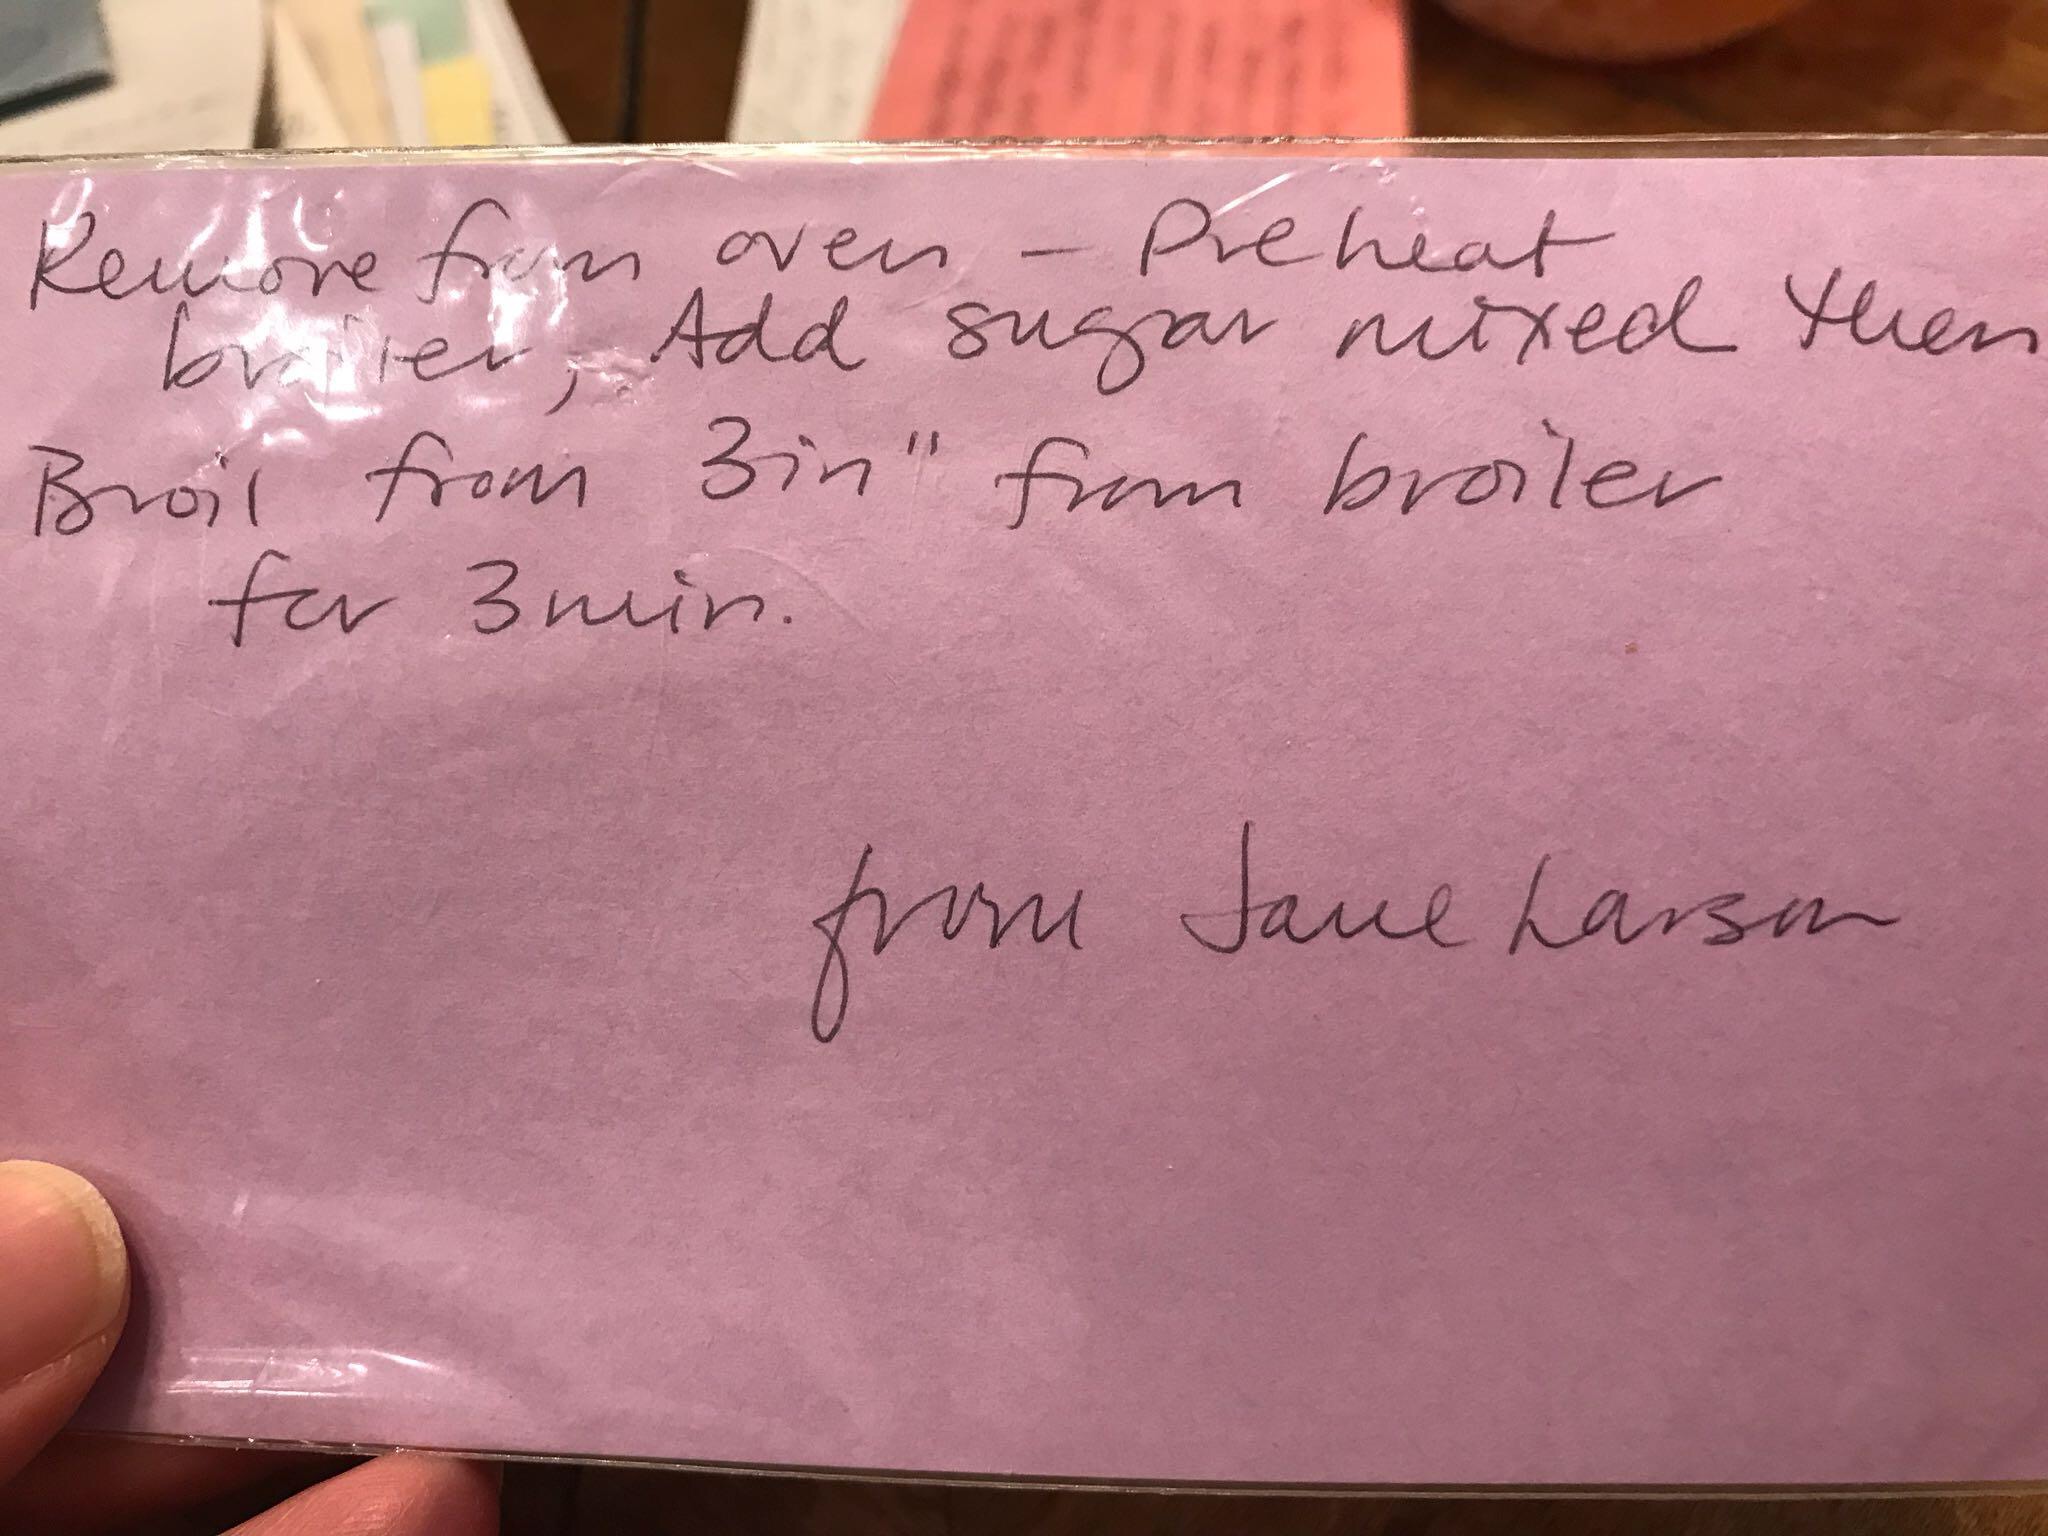 Remove from oven - Preheat
broiler, Add sugar mixed then
Broil from 3in" from broiler
for 3 min.
from Jane Larson